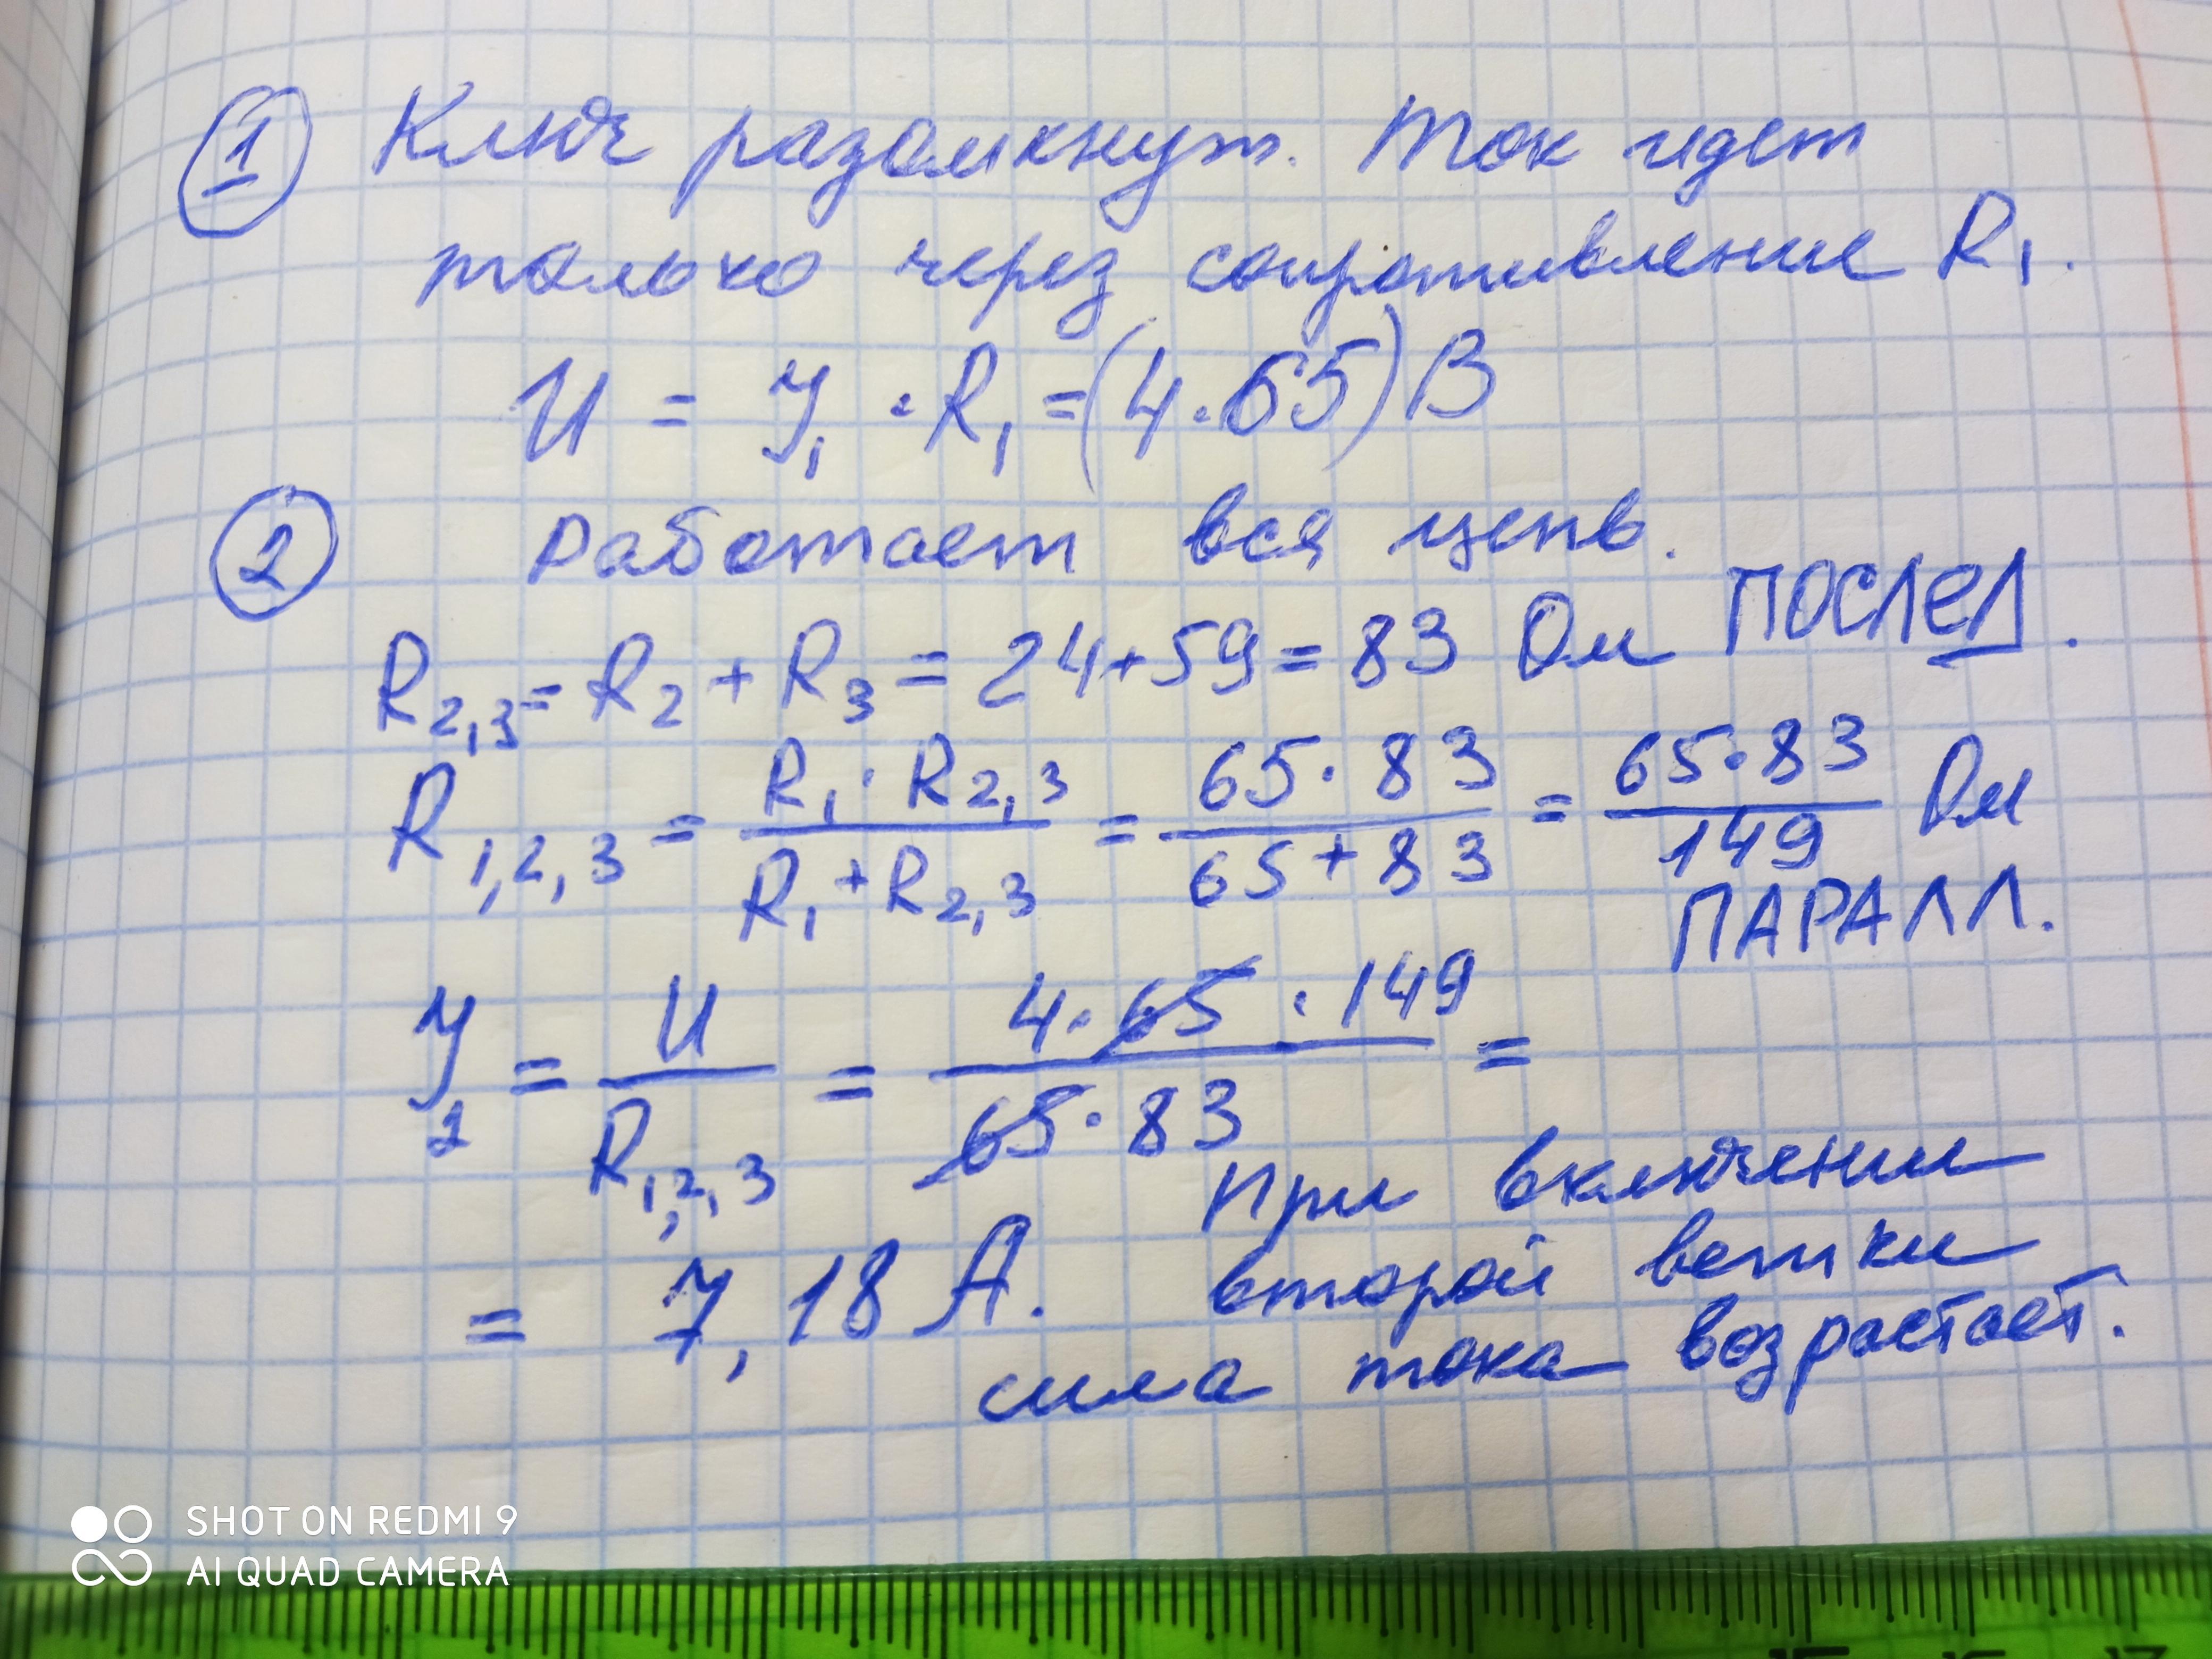 1 Ключ разомкнут. Ток идет
только через сопротивление R1.
U = У1 · R1 = (4·65) В
2 Работает вся цепь.
R2,3 = R2 + R3 = 24+59 = 83 Ом ПОСЛЕД.
R1,2,3 = R1 · R2,3 / R1 + R2,3 = 65·83 / 65+83 = 65·83 / 149 Ом
ПАРАЛЛ.
У2 = U / R1,2,3 = 4·65·149 / 65·83 =
= 7,18 А. При включении
второй ветки
сила тока возрастает.
SHOT ON REDMI 9
AI QUAD CAMERA
15 16 17